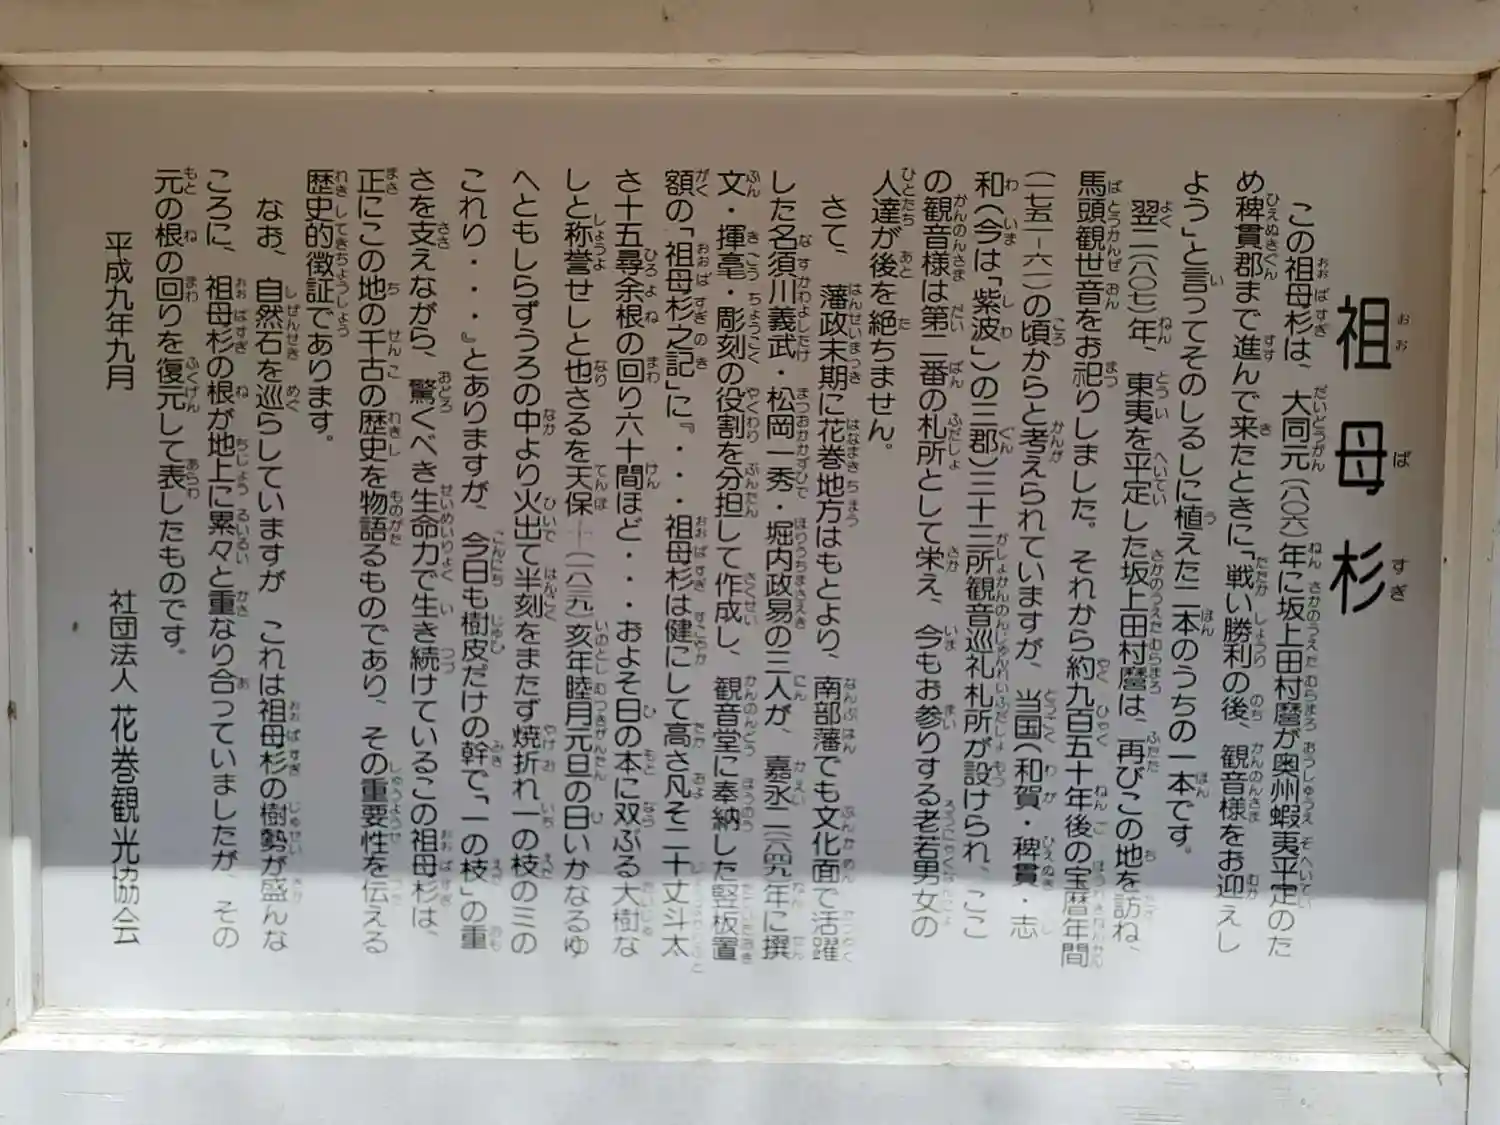 祖母杉
この祖母杉は、大同元(八〇六)年に坂上田村麿が奥州蝦夷平定のた
め稗貫郡まで進んで来たときに「戦い勝利の後、観音様をお迎えし
よう」と言ってそのしるしに植えた二本のうちの一本です。
翌二(八〇七)年、東夷を平定した坂上田村麿は、再びこの地を訪ね、
馬頭観世音をお祀りしました。それから約九百五十年後の宝暦年間
(一七五一-六一)の頃からと考えられていますが、当国(和賀・稗貫・志
和(今は「紫波」)の三郡)三十三所観音巡礼札所が設けられ、ここ
の観音様は第二番の札所として栄え、今もお参りする老若男女の
人達が後を絶ちません。
さて、藩政末期に花巻地方はもとより、南部藩でも文化面で活躍
した名須川義武・松岡一秀・堀内政易の三人が、嘉永二(一八四九)年に撰
文・揮毫・彫刻の役割を分担して作成し、観音堂に奉納した竪板置
額の「祖母杉之記」に『・・・祖母杉は健にして高さ凡そ二十丈斗太
さ十五尋余根の回り六十間ほど・・・およそ日の本に双ぶる大樹な
しと称誉せしと也さるを天保十(一八三九)亥年睦月元旦の日いかなるゆ
へともしらずうろの中より火出て半刻をまたず焼折れ一の枝のミの
これり・・・』とありますが、今日も樹皮だけの幹で「一の枝」の重
さを支えながら、驚くべき生命力で生き続けているこの祖母杉は、
正にこの地の千古の歴史を物語るものであり、その重要性を伝える
歴史的徴証であります。
なお、自然石を巡らしていますが、これは祖母杉の樹勢が盛んな
ころに、祖母杉の根が地上に累々と重なり合っていましたが、その
元の根の回りを復元して表したものです。
平成九年九月
社団法人 花巻観光協会